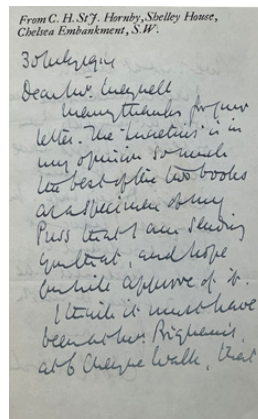 From C. H. St J. Hornby, Shelley House,
Chelsea Embankment, S.W.
Dear Mr. Meynell
Many thanks for your
letter. The "Lucretius" is in
my opinion so much
the best of the two books
as a specimen of my
Press that I am sending
you that, and hope
you will approve of it.
I think it must have
been at Mrs.
at 6 Cheyne Walk, that